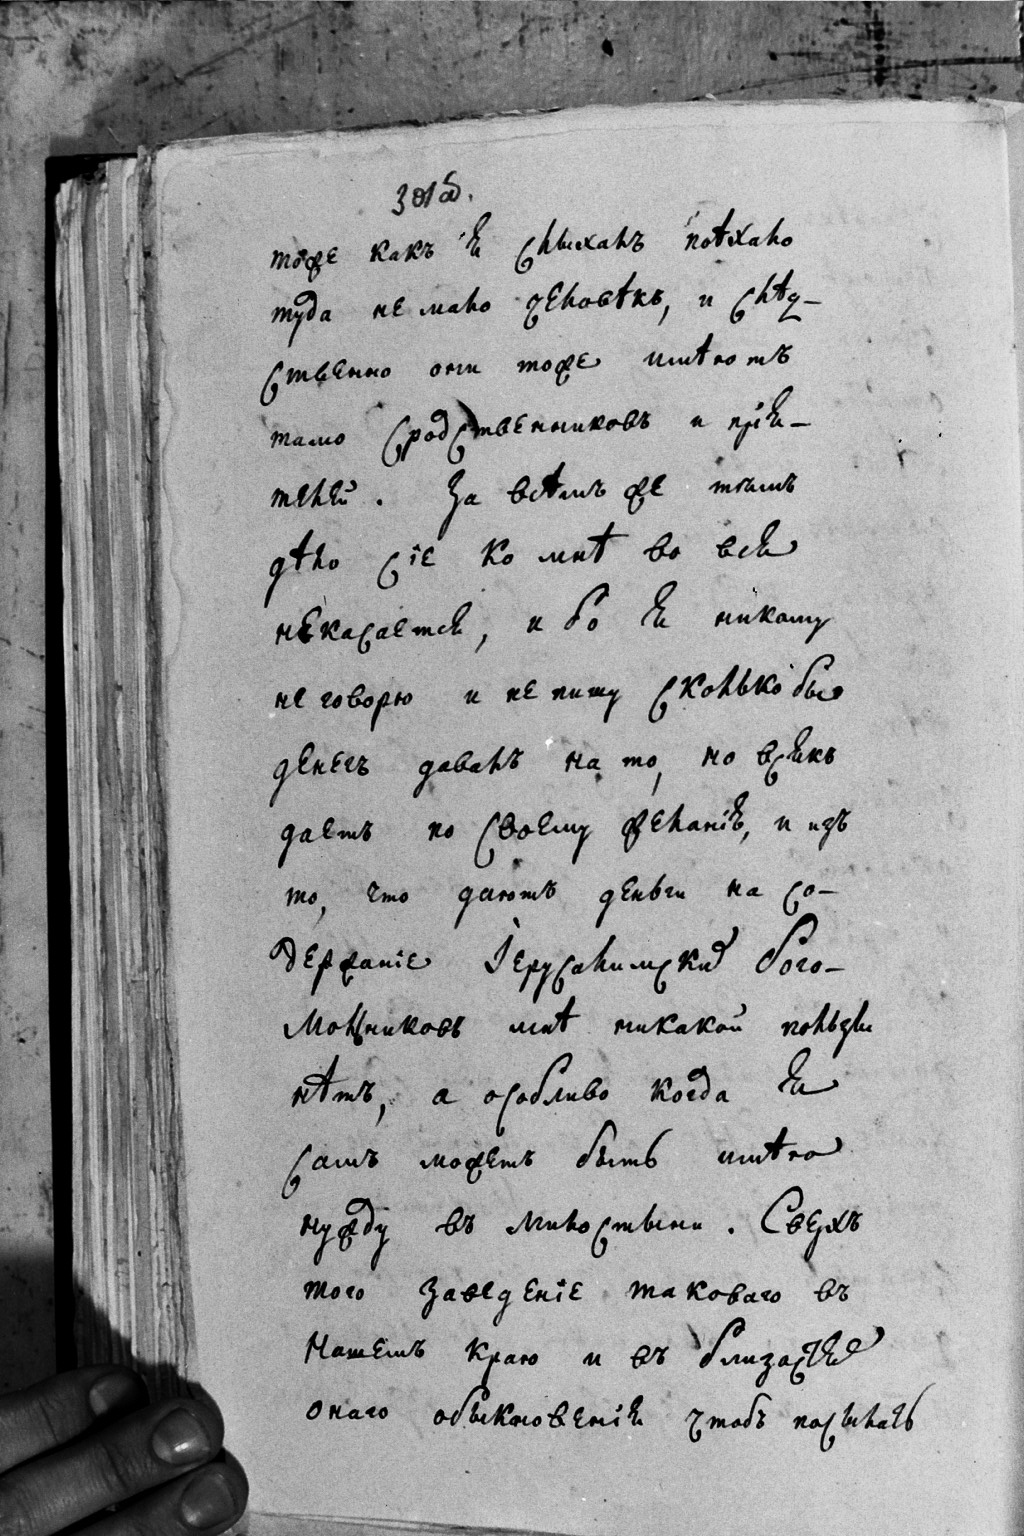 301 об.
тоже какъ я слыхалъ поѣхало
туда не мало человѣкъ, и слѣд-
ственно они тоже имѣютъ
тамо сродственниковъ и прія-
телей. За всѣмъ же тѣмъ
дѣло сіе ко мнѣ во вся
некасается, ибо я никому
не говорю и не пишу сколько бы
денегъ давалъ на то, но всякъ
даетъ по своему желанію, и изъ
то, что даютъ деньги на со-
держаніе Іерусалимски бого-
молцниковъ мнѣ никакой пользы
нѣтъ, а особливо когда я
самъ можетъ быть имѣю
нужду въ милостыни. Сверхъ
того заведеніе таковаго въ
нашемъ краю и въ близости
онаго обыкновенія чтобъ посылать